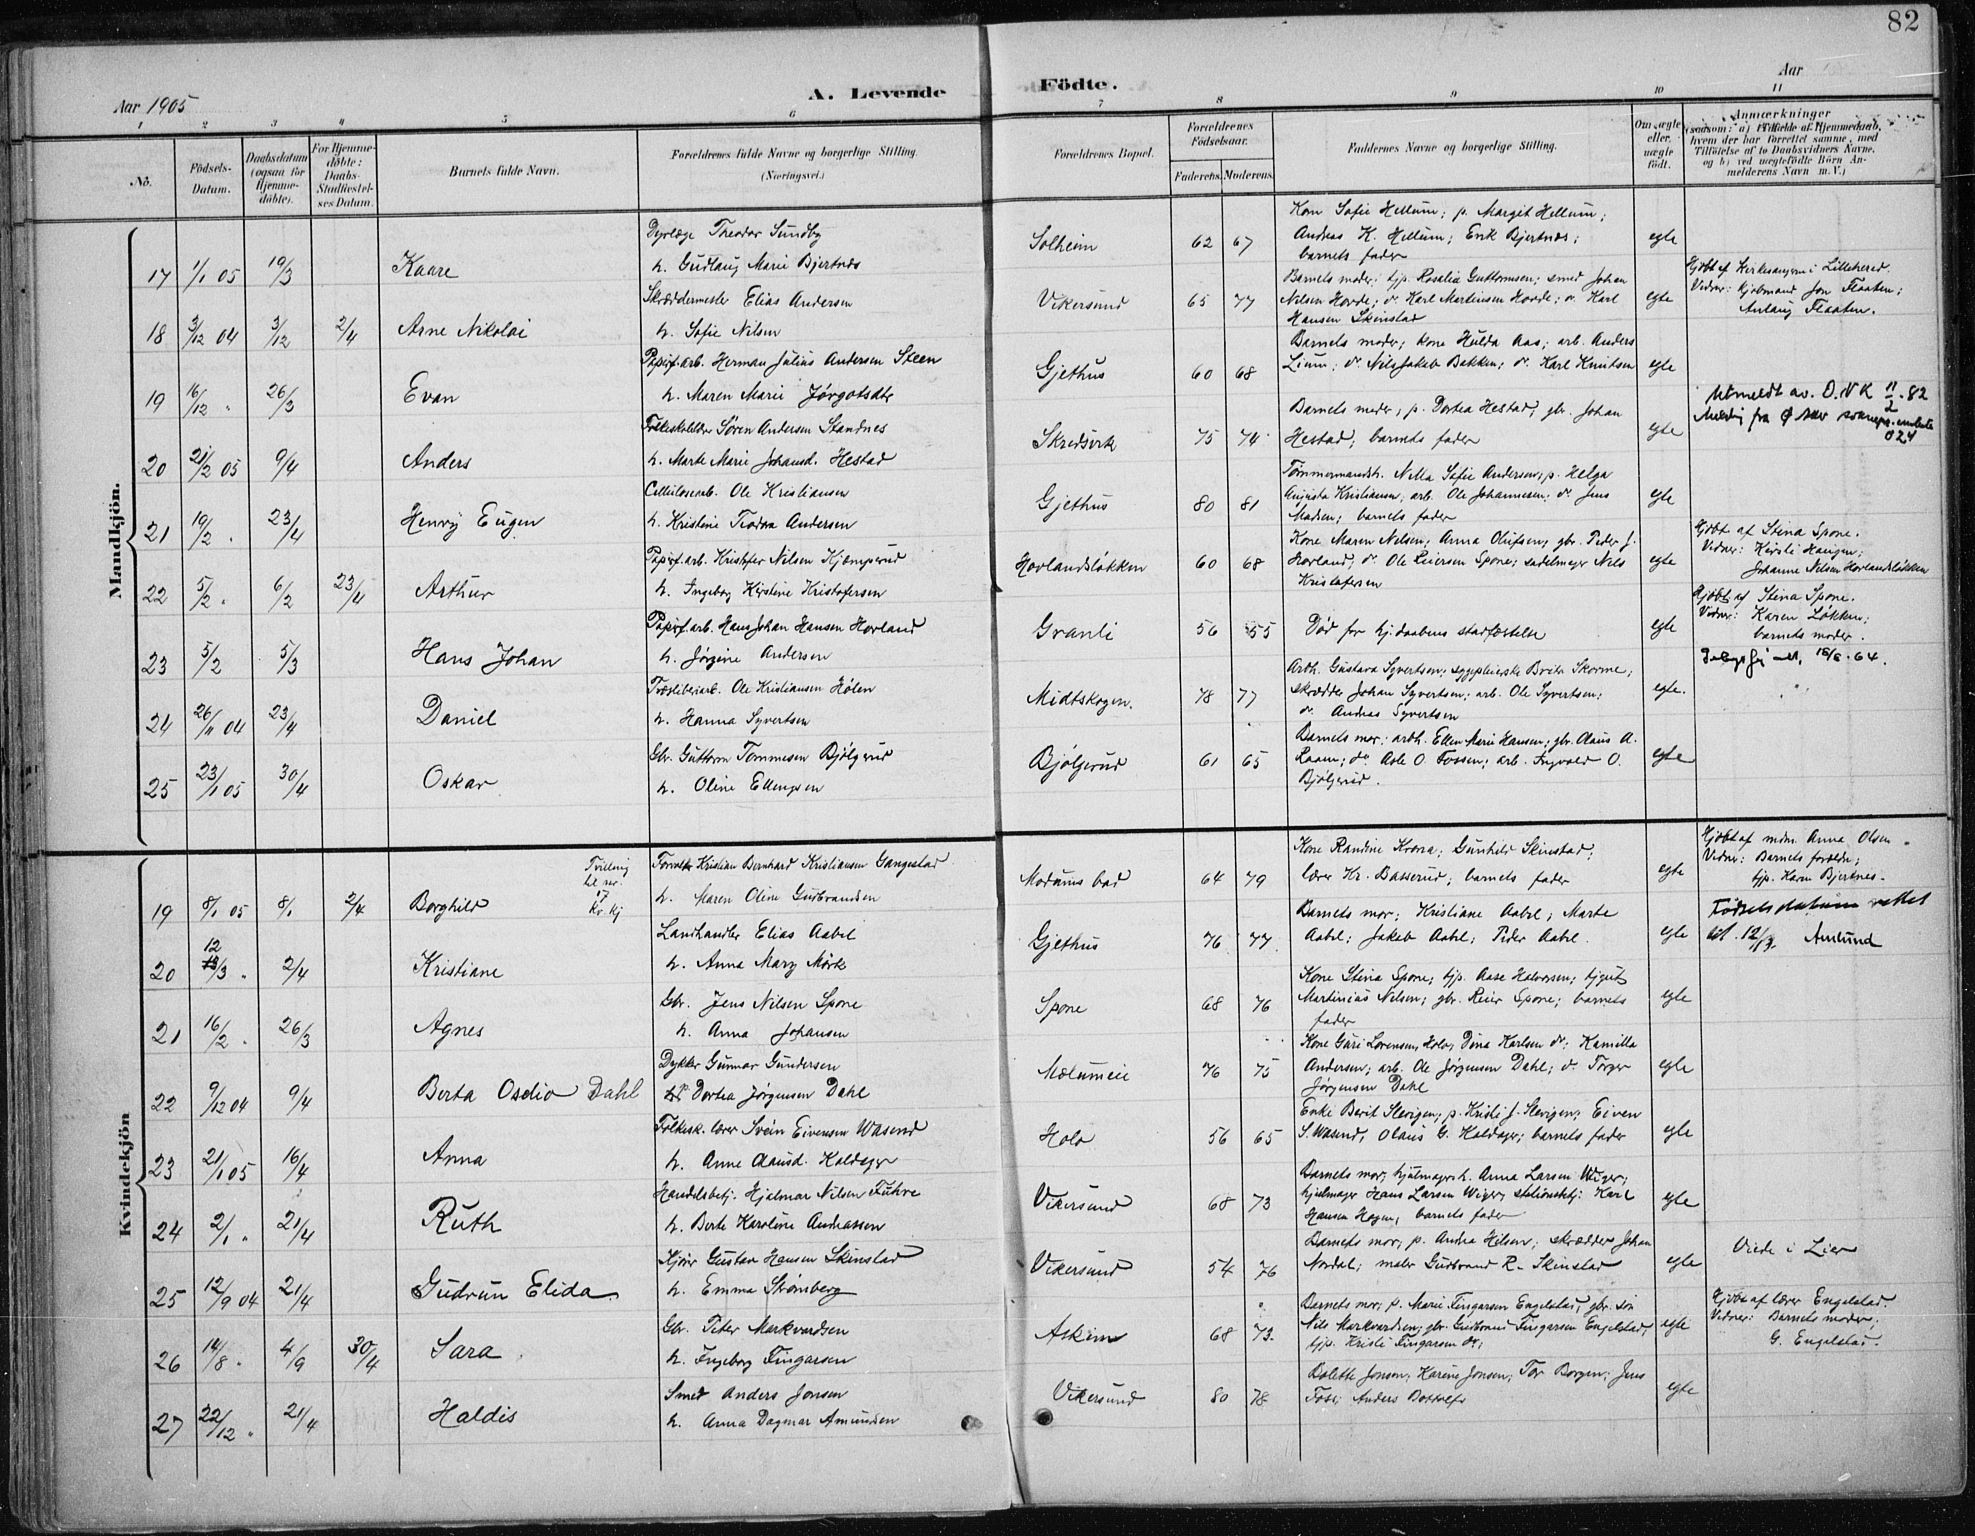 82
Aar 1905
A. Levende
Födte.
Aar
1 2 3 4 5 6 7 8 9 10 11
No.
Födsels-Datum.
Daabsdatum (ogsaa for Hjemmedöbte).
For Hjemmedöbte: Daabs-Stadfæstelses Datum.
Barnets fulde Navn.
Forældrenes fulde Navne og borgerlige Stilling. (Næringsvei.)
Forældrenes Bopæl.
Forældrenes Födselsaar.
Faderens. Moderens.
Faddernes Navne og borgerlige Stilling.
Om ægte eller uægte födt.
Anmærkninger
(saasom: a) i Tilfælde af Hjemmedaab, hvem der har forrettet samme, med Tilföielse af to Daabsvidners Navne, og b) ved uægtefödte Börn Anmelderens Navn m. V.)
Mandkjön.
17 1/1 05 19/3 Kaare
Dyrlæge Theodor Sundby
h. Gudlaug Marie Bjertnæs
Solheim 62 67
Kone Sofie Hellum; p. Margit Hellum;
Andreas K. Hellum; Erik Bjertnæs;
barnets fader
egte
18 3/12 04 3/12 2/4 Arne Nikolai
Skræddermester Elias Andersen
h. Sofie Nilsen
Vikersund 65 77
Barnets moder; tjp. Rosalia Guttormsen; smed Johan
Nilsen Hovde; do Karl Martinsen Hovde; do Karl
Hansen Skinstad
egte
Hjdbt af Kirkesangeren i Lilleherred.
Vidner: Kjøbmand Jon Flaaten;
Anlaug Flaaten.
19 16/12 " 26/3 Evan
Papirf.arb. Herman Julius Andersen Steen
h. Maren Marie Jørgotsdtr
Gjethus 60 68
Barnets moder; kone Hulda Aas; arb. Anders
Lium; do Nils Jakob Bakken; do Karl Knutsen
egte
Utmeldt av. D.N.K 11/2 - 82
20 21/2 05 9/4 Anders
Folkeskolelær Søren Andersen Standnes
h. Marte Marie Johansd. Hestad
Skredsvik 75 74
Barnets moder; p. Dortea Hestad; gbr. Johan
Hestad; barnets fader
egte
21 19/2 " 23/4 Henry Eugen
Cellulosearb. Ole Kristiansen
h. Kristine Teodora Andersen
Gjethus 80 81
Tømmermandsh. Nella Sofie Andersen; p. Helga
Augusta Kristiansen; arb. Ole Johannesen; do Jens
Madsen; barnets fader
egte
22 5/2 " 6/2 23/4 Arthur
Papirf.arb. Kristofer Nilsen Kjæmperud
h. Ingeborg Kirstine Kristofersen
Hovlandsløkken 60 68
Kone Maren Nelsen; Anna Olufsen; gbr. Peder J.
Hovland; do Ole Leiersen Spone; sadelmager Nils
Kristofersen
egte
Hjdbt af Stena Spone.
Vidner: Kirsti Haugen;
Johanne Nilsen Hovlandsløkken
23 5/2 5/3 Hans Johan
Papirf.arb. Hans Johan Hansen Hovland
h. Jørgine Andersen
Granli 56 55
Død før hj.daabens stadfæstelse
egte
Hjdbt af Stina Spone.
Vidner: Karen Løkken;
barnets moder.
24 26/11 04 23/4 Daniel
Træsliberiarb. Ole Kristiansen Holen
h. Hanna Syvertsen
Midtskogen 78 77
Arbh. Gustava Syvertsen; sypleierske Brita Skorme;
skrædder Johan Syvertsen; arb. Ole Syvertsen;
do Andreas Syvertsen
egte.
25 23/1 05 30/4 Oskar
Gbr. Guttorm Tommesen Bjølgerud
h. Oline Ellingsen
Bjølgerud 61 65
Barnets mor; arbh. Ellen Marie Hansen; gbr. Olaus A.
Raaen; do Asle O. Fossen; arb. Ingvald O.
Bjølgerud.
egte
Kvindekjön
19 8/1 05 8/1 2/4 Borghild
Tvilling til nr. 17 Kv.kj
Forvalter Kristian Bernhard Kristiansen Gangestad
h. Maren Oline Gudbrandsen
Modums bad 64 79
Kone Randine Krona; Gunhild Skinstad;
lærer Kr. Basserud; barnets fader
egte
Hjdbt af mdm. Anna Olsen.
Vidner: Barnets forældre;
tjp. Karen Bjertnes.
20 12/3 " 2/4 Kristiane
Landhandler Elias Aabel
h. Anna Mary Mørk
Gjethus 76 77
Barnets mor; Kristiane Aabel; Marte
Aabel; Jakob Aabel; Peder Aabel.
egte
Fødselsdatum rettet
til 12/3. Amlund
21 16/2 " 26/3 Agnes
Gbr. Jens Nilsen Spone
h. Anna Johansen
Spone 68 76
Kone Stina Spone; tjp. Aase Halvorsen; tjgut
Martinius Nilsen; gbr. Reier Spone; barnets
fader
egte
22 9/12 04 9/4 Berta Osedio Dahl
Dykker Gunnar Gundersen
h. Dortea Jørgensen Dahl
Mælumeie 76 75
Kone Guri Lorensen Holo; Dina Karlsen do; Kamilla
Andersen; arb. Ole Jørgensen Dahl; do Torger
Jørgensen Dahl
egte
23 21/1 05 16/4 Anna
Folkesk.lærer Svein Eivensen Wasend
h. Anne Olausd. Kaldager
Holo 56 65
Enke Berit Slevigen; p. Kristi J. Slevigen; Eiven
S. Wasend; Olaus G. Kaldager; barnets fader
egte
24 2/1 " 21/4 Ruth
Handelsbetj. Hjalmar Nilsen Fuhre
h. Berte Karoline Andreassen
Vikersund 68 73
Barnets mor; hjulmagerh. Anna Larsen Wiger;
hjulmager Hans Larsen Wiger; stationsbetj. Karl
Hansen Hagen; barnets fader
egte
25 12/9 04 21/4 Gudrun Elida
Kjører Gustav Hansen Skinstad
h. Emma Strømberg
Vikersund 54 76
Barnets mor; p. Andrea Nilsen; skrædder Johan
Nordal; maler Gudbrand R. Skinstad
egte
Viede i Lier
26 14/8 " 4/9 30/4 Sara
Gbr. Peter Markvardsen
h. Ingeborg Fingarsen
Askim 68 73.
Barnets mor; p. Marie Fingarsen Engelstad; gbr. søn
Nils Markvardsen; gbr. Gudbrand Fingarsen Engelstad;
tjp. Kristi Fingarsen do;
egte
Hjdbt af lærer Engelstad.
Vidner: Barnets moder;
G. Engelstad.
27 22/12 " 21/4 Haldis
Smed Anders Jonsen
h. Anna Dagmar Amundsen
Vikersund 80 78
Bolette Jonsen; Karine Jonsen; Tor Borgen; Jens
Foss; Anders Bottolfs
egte